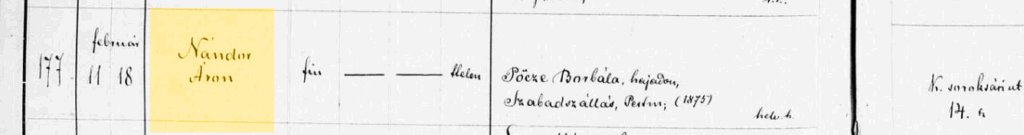 február
177 11 18 Nándor
Áron fiu — — tlelen Pőcze Borbála, hajadon,
Szabadszállás, Pestm; (1875)
helv. h.
N. soroksári út
14.